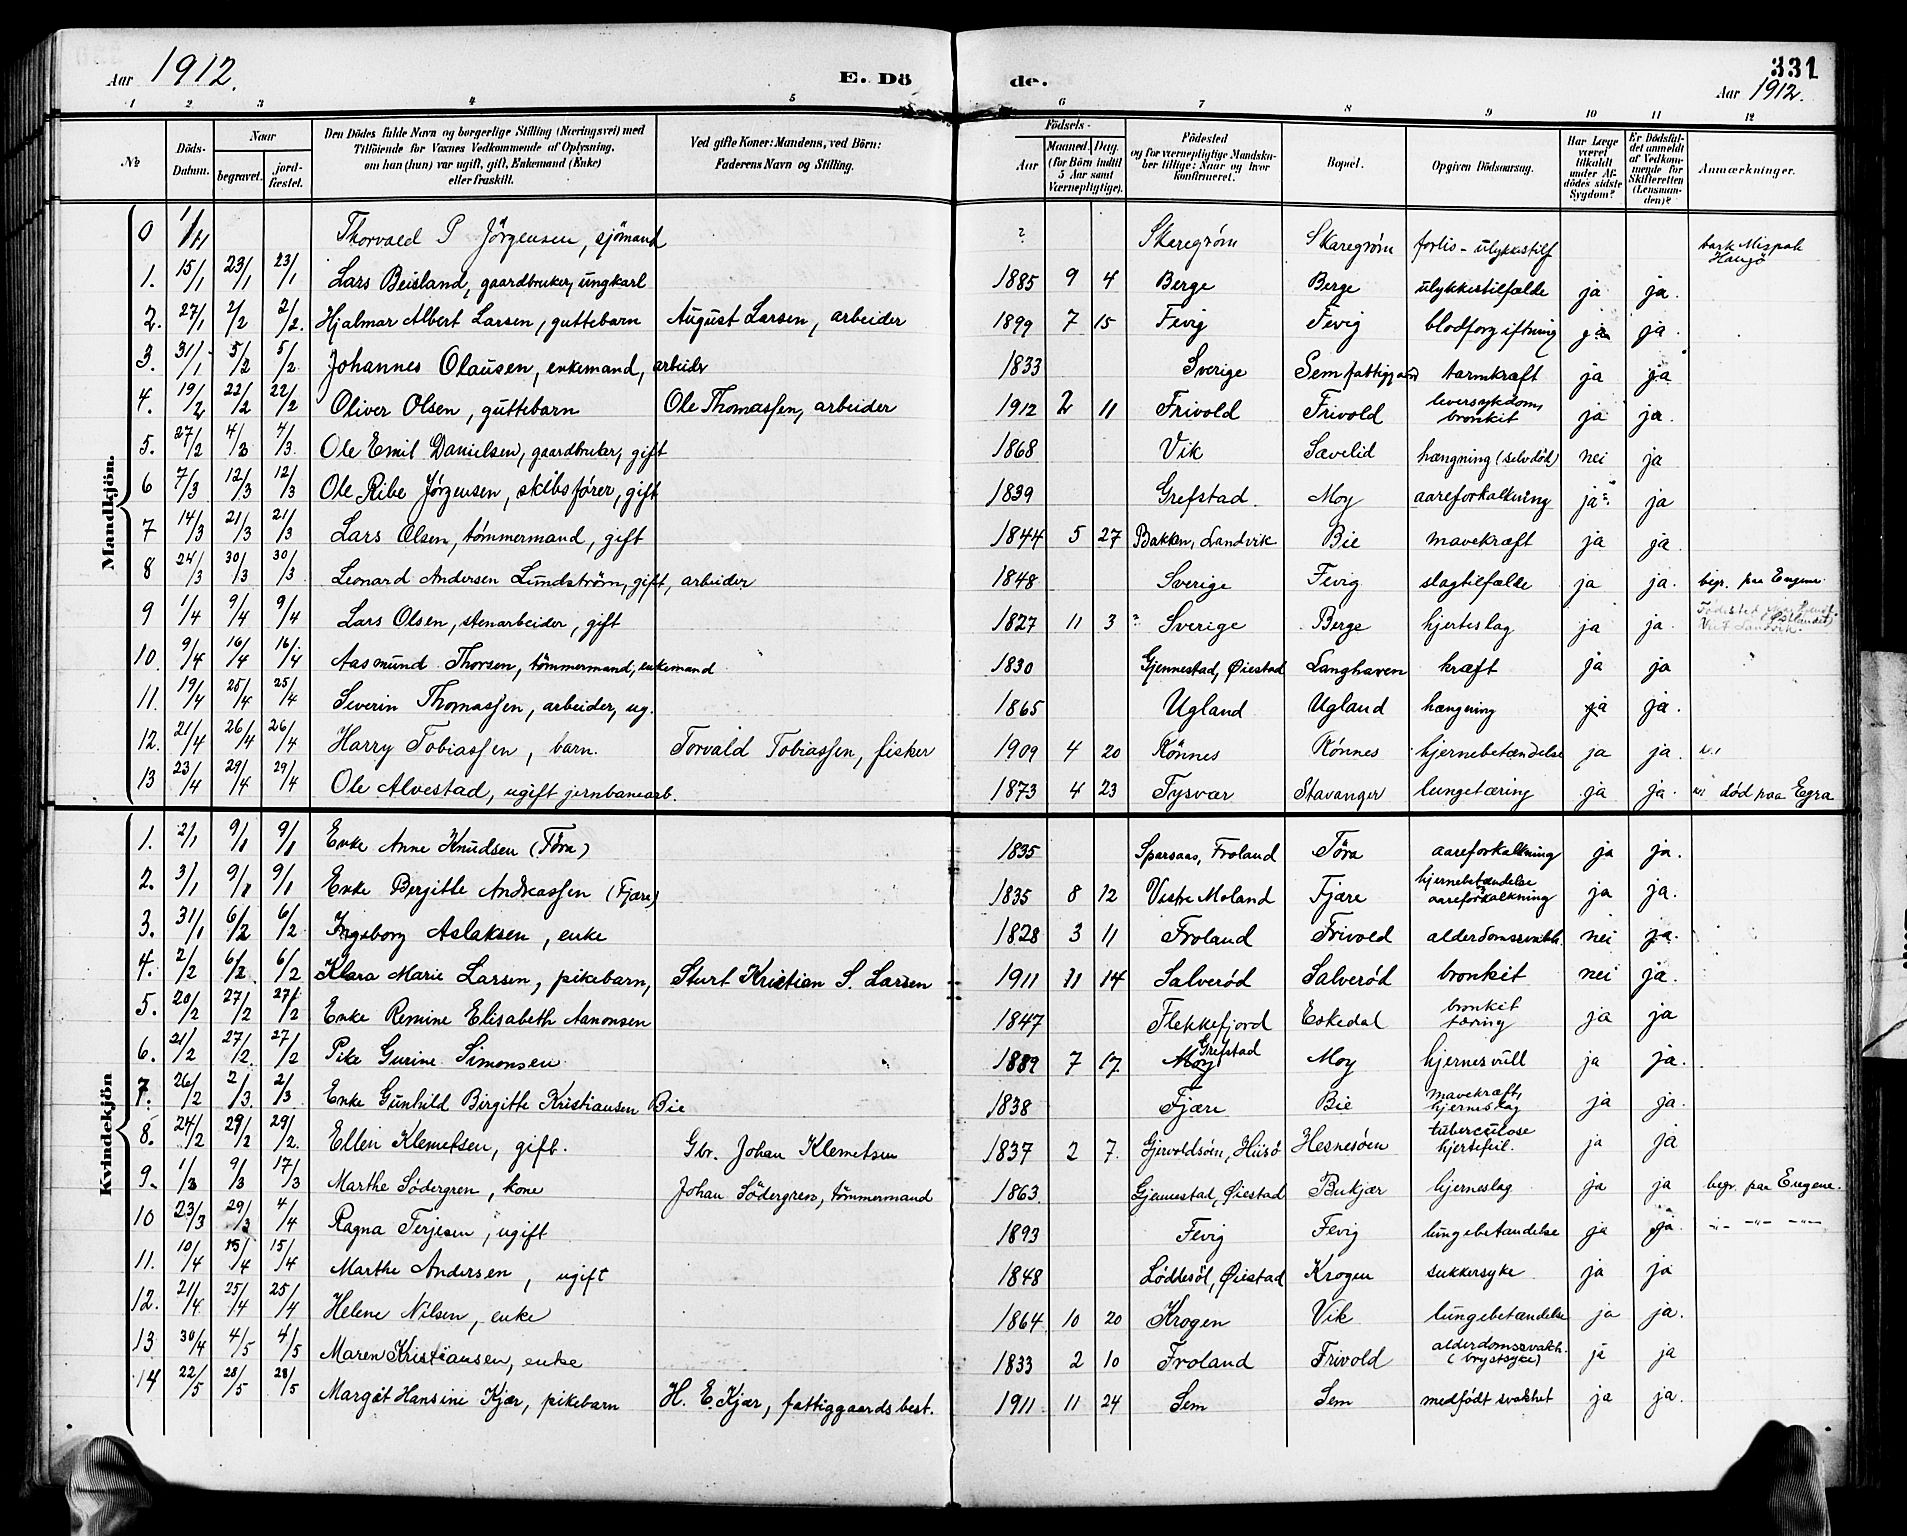 Aar 1912. E. Döde. 331
Aar 1912.
1 2 3 4 5 6 7 8 9 10 11 12
№ | Döds-Datum. | Naar begravet. | jordfæstet. | Den Dödes fulde Navn og borgerlige Stilling (Næringsvei) med Tilföiende for Voxnes Vedkommende af Oplysning, om han (hun) var ugift, gift, Enkemand (Enke) eller fraskilt. | Ved gifte Koner: Mandens, ved Börn: Faderens Navn og Stilling. | Födsels- Aar | Maaned. | Dag. (for Börn indtil 5 Aar samt Værnepligtige). | Födested og for værnepligtige Mandskaber tillige: Naar og hvor konfirmeret. | Bopæl. | Opgiven Dödsaarsag. | Har Læge været tilkaldt under Afdödes sidste Sygdom? | Er Dödsfaldet anmeldt af Vedkommende for Skifteretten (Lensmanden)? | Anmærkninger.
Mandkjön.
0 | Thorvald P Jörgensen, sjömand | ? | Skaregrøm | Skaregrøm | forlis - ulykkestilf | bark Mispah Haugö
1. | 15/1 | 23/1 | 23/1 | Lars Beisland, gaardbruker, ungkarl | 1885 | 9 | 4 | Berge | Berge | ulykkestilfælde | ja | ja.
2. | 27/1 | 2/2 | 2/2. | Hjalmar Albert Larsen, guttebarn | August Larsen, arbeider | 1899 | 7 | 15 | Fevig | Fevig | blodforgiftning | ja | ja.
3. | 31/1 | 5/2 | 5/2 | Johannes Olausen, enkemand, arbeider | 1833 | Sverige | Sem fattiggaard | tarmkræft | ja | ja
4. | 19/2 | 22/2 | 22/2 | Oliver Olsen, guttebarn | Ole Thomassen, arbeider | 1912 | 2 | 11 | Frivold | Frivold | leversykdom, bronkit | ja | ja.
5. | 27/2 | 4/3 | 4/3. | Ole Emil Danielsen, gaardbruker, gift | 1868 | Vik | Savelid | hængning (selvdød) | nei | ja
6 | 7/3 | 12/3 | 12/3 | Ole Ribe Jörgensen, skibsfører, gift | 1839 | Grefstad. | Moy | aareforkalkning | ja | ja
7 | 14/3 | 21/3 | 21/3 | Lars Olsen, tømmermand, gift | 1844 | 5 | 27 | Bakken, Landvik | Bie | mavekræft | ja | ja.
8 | 24/3 | 30/3 | 30/3 | Leonard Andersen Lundstrøm, gift, arbeider | 1848 | Sverige | Fevig | slagtilfælde | ja | ja. | begr. paa Eugene.
9 | 1/4 | 9/4 | 9/4 | Lars Olsen, stenarbeider, gift | 1827 | 11 | 3 | ? Sverige | Berge | hjerteslag | ja | ja.
10. | 9/4 | 16/4 | 16/4 | Aasmund Thorsen, tömmermand, enkemand | 1830 | Gjennestad, Øiestad | Langhaven | kræft | ja | ja
11. | 19/4 | 25/4 | 25/4 | Severin Thomassen, arbeider, ug. | 1865 | Ugland | Ugland | hængning | ja | ja.
12. | 21/4 | 26/4 | 26/4 | Harry Tobiassen, barn. | Torvald Tobiassen, fisker | 1909 | 4 | 20 | Rönnes | Rönnes | hjernebetændelse | ja | ja.
13 | 23/4 | 29/4 | 29/4 | Ole Alvestad, ugift jernbanearb. | 1873 | 4 | 23 | Tysvær | Stavanger | lungetæring | ja | ja. | død paa Egra
Kvindekjön
1. | 2/1 | 9/1 | 9/1 | Enke Anne Knudsen (Töra) | 1835 | Sparsaas, Froland | Töra | aareforkalkning | ja | ja.
2. | 3/1 | 9/1 | 9/1 | Enke Bergitte Andreassen (Fjære) | 1835 | 8 | 12 | Vestre Moland | Fjære | hjernebetændelse aareforkalkning | ja | ja.
3. | 31/1 | 6/2 | 6/2 | Ingeborg Aslaksen, enke | 1828 | 3 | 11 | Froland | Frivold | alderdomssvakh. | nei | ja.
4. | 2/2 | 6/2. | 6/2 | Klara Marie Larsen, pikebarn, | Sturt Kristian S. Larsen | 1911 | 11 | 14 | Salverød | Salverød | bronkit | nei | ja.
5. | 20/2 | 27/2 | 27/2 | Enke Remine Elisabeth Aanonsen | 1847 | Flekkefjord | Eskedal | bronkit tæring | ja | ja
6. | 21/2 | 27/2. | 27/2 | Pike Gurine Simonsen | 1889 | 7 | 17 | Moy Grefstad | Moy | hjernesvull | ja | ja.
7. | 26/2 | 2/3. | 2/3 | Enke Gunhild Birgitte Kristiansen Bie | 1838 | Fjære | Bie | mavekræft, hjerneslag | ja | ja.
8. | 24/2 | 29/2 | 29/2. | Ellen Klemetsen, gift. | Gbr. Johan Klemetsen | 1837 | 2 | 7. | Gjervoldsøen, Hiisö | Hesnesöen | tuberculose hjertefeil. | ja | ja
9. | 1/3 | 9/3 | 17/3 | Marthe Södergren, kone | Johan Södergren, tömmermand | 1863. | Gjennestad, Øiestad | Bukjær | hjerneslag | ja | ja | begr. paa Eugene.
10 | 23/3 | 29/3 | 4/4 | Ragna Terjesen, ugift | 1893 | Fevig | Fevig | lungebetændelse | ja | ja. | -"- -"- -"-
11. | 10/4 | 15/4 | 15/4 | Marthe Andersen, ugift | 1848 | Löddesöl, Øiestad | Krogen | sukkersyke | ja | ja
12. | 21/4 | 25/4 | 25/4 | Helene Nilsen, enke | 1864 | 10 | 20 | Krogen | Vik | lungebetændelse | ja | ja.
13 | 30/4 | 4/5 | 4/5 | Maren Kristiansen, enke | 1833 | 2 | 10 | Froland | Frivold | alderdomssvakh. (brystsyke) | ja | ja
14 | 22/5 | 28/5 | 28/5 | Margit Hansine Kjær, pikebarn | H. E. Kjær, fattiggaardsbest. | 1911 | 11 | 24 | Sem | Sem | medfödt svakhet | ja | ja.